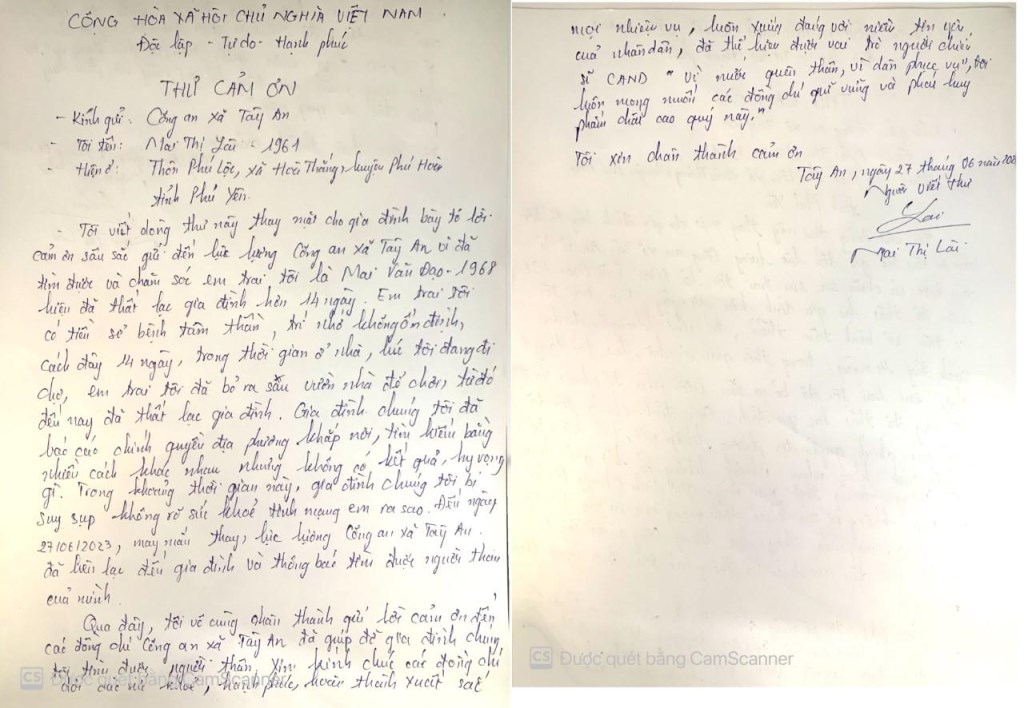 CỘNG HÒA XÃ HỘI CHỦ NGHĨA VIỆT NAM
Độc lập - Tự do - Hạnh phúc
THƯ CẢM ƠN
- Kính gửi: Công an xã Tây An
- Tôi tên: Mai Thị Lài - 1961
- Hiện ở: Thôn Phú Lộc, xã Hòa Thắng, huyện Phú Hòa
tỉnh Phú Yên.
- Tôi viết dòng thư này thay mặt cho gia đình bày tỏ lời
cảm ơn sâu sắc gửi đến lực lượng Công an xã Tây An vì đã
tìm được và chăm sóc em trai tôi là Mai Văn Đạo - 1968
hiện đã thất lạc gia đình hơn 14 ngày. Em trai tôi
có tiền sử bệnh tâm thần, trí nhớ không ổn định,
cách đây 14 ngày, trong thời gian ở nhà, lúc tôi đang đi
chợ, em trai tôi đã bỏ ra sân vườn nhà để chơi, từ đó
đến nay đã thất lạc gia đình. Gia đình chúng tôi đã
báo cáo chính quyền địa phương khắp nơi, tìm kiếm bằng
nhiều cách khác nhau nhưng không có kết quả, hy vọng
gì. Trong khoảng thời gian này, gia đình chúng tôi bị
suy sụp không rõ sức khoẻ tính mạng em ra sao. Đến ngày
27/06/2023, may mắn thay, lực lượng Công an xã Tây An.
đã liên lạc đến gia đình và thông báo tìm được người thân
của mình.
Qua đây, tôi vô cùng chân thành gửi lời cảm ơn đến
các đồng chí Công an xã Tây An đã giúp đỡ gia đình chúng
tôi tìm được người thân. Xin kính chúc các đồng chí
dồi dào sức khoẻ, hạnh phúc, hoàn thành xuất sắc
CS Được quét bằng CamScanner
mọi nhiệm vụ, luôn xứng đáng với niềm tin yêu
của nhân dân, đã thể hiện được vai trò người chiến
sĩ CAND "Vì nước quên thân, vì dân phục vụ", tôi
luôn mong muốn các đồng chí giữ vững và phát huy
phẩm chất cao quý này."
Tôi xin chân thành cảm ơn
Tây An, ngày 27 tháng 06 năm
Người viết thư
Lài
Mai Thị Lài
CS Được quét bằng CamScanner